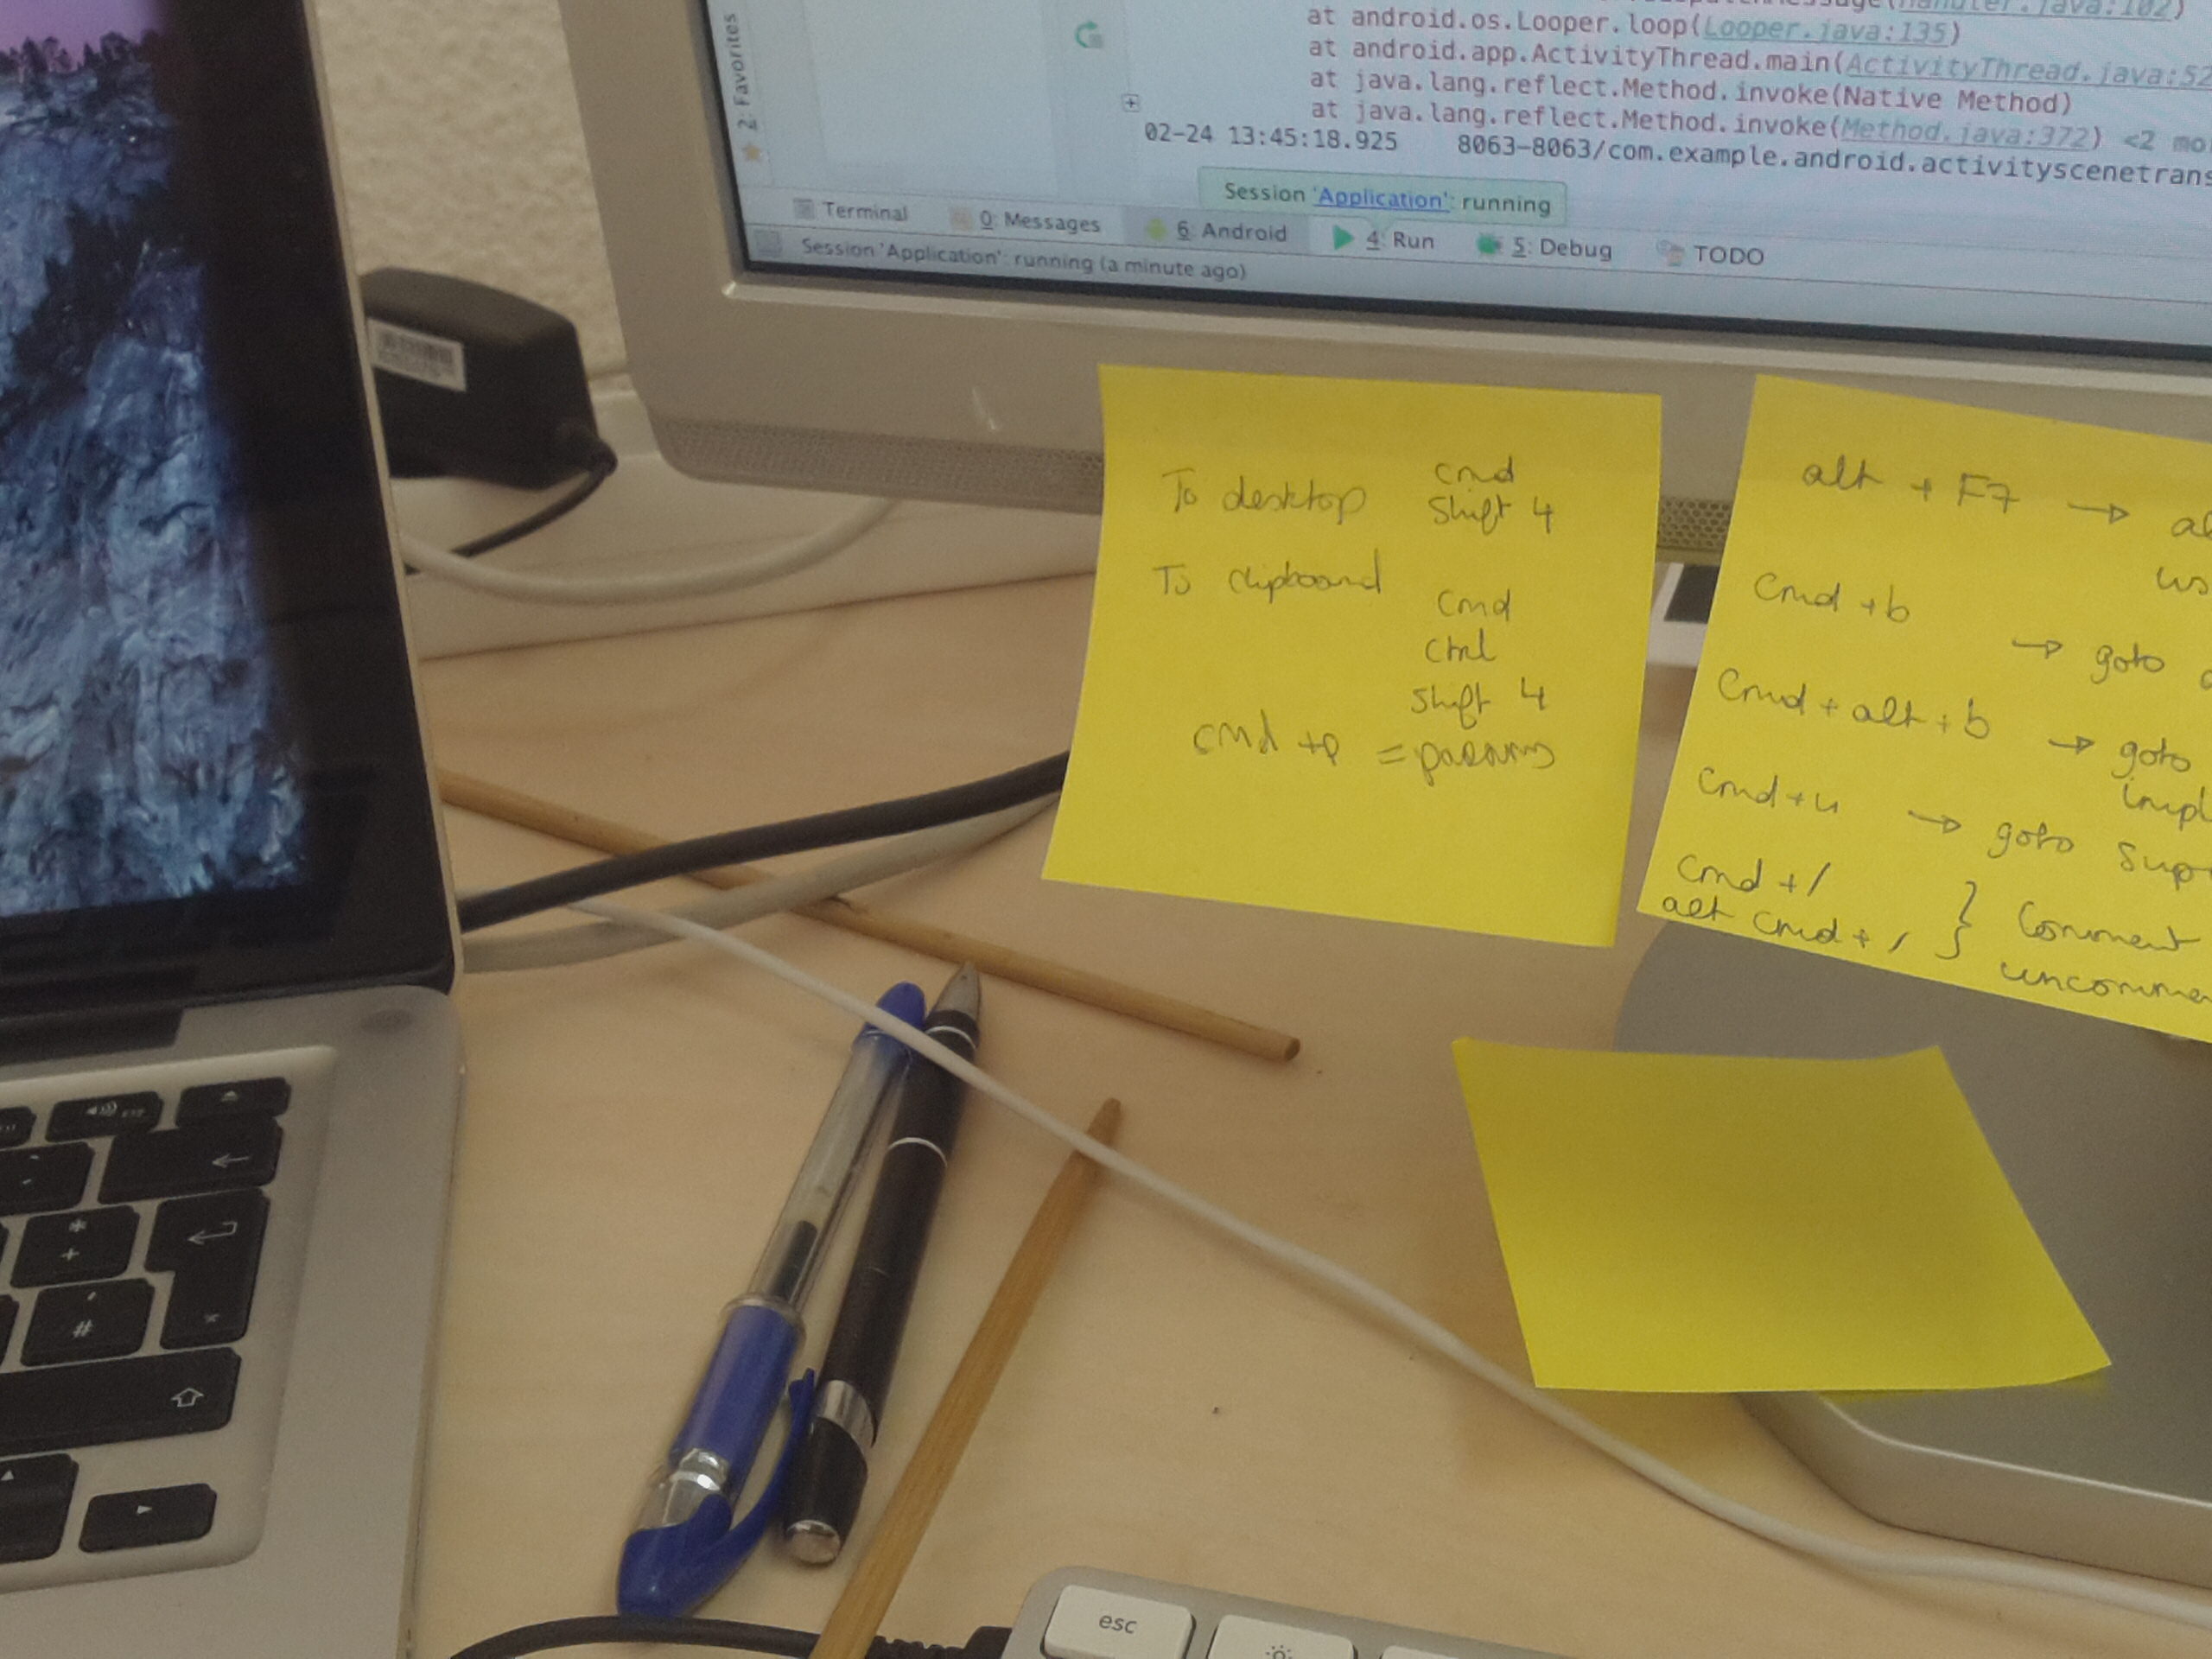 at android.os.Looper.loop(Looper.java:135)
at android.app.ActivityThread.main(ActivityThread.java:52
at java.lang.reflect.Method.invoke(Native Method)
at java.lang.reflect.Method.invoke(Method.java:372) <2 mo
02-24 13:45:18.925 8063-8063/com.example.android.activityscenetrans
2: Favorites
Session 'Application': running
Terminal 0: Messages 6: Android 4: Run 5: Debug TODO
Session 'Application': running (a minute ago)
To desktop cmd
shift 4
To clipboard
cmd
ctrl
shift 4
cmd +p = params
alt + F7 →
cmd + b
→ goto
cmd + alt + b → goto
impl
cmd + u → goto sup
cmd + /
alt cmd + / } Comment
uncomme
* +
' #
esc